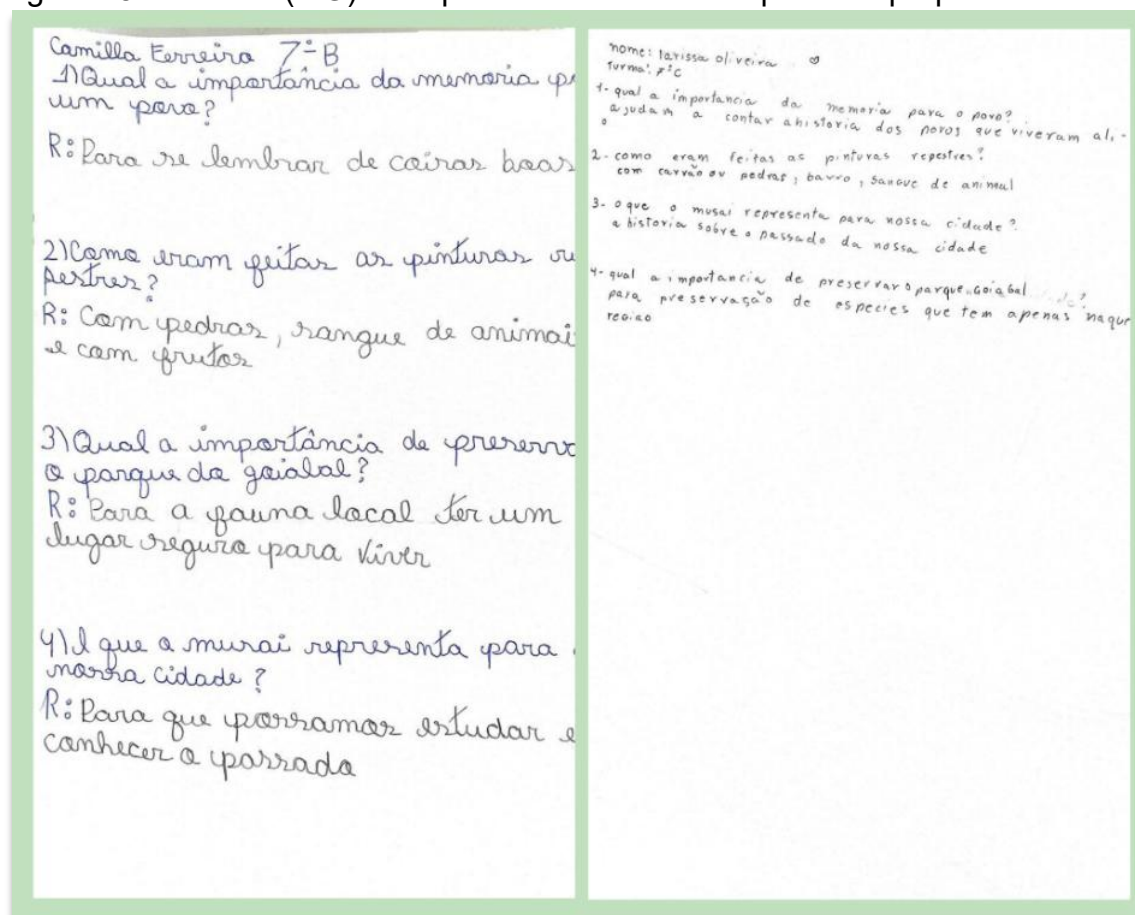 Camilla Ferreira 7º B
1) Qual a importância da memoria
um povo?
R: Para se lembrar de coisas boas
2) Como eram feitas as pinturas ru
pestres?
R: Com pedras, sangue de animai
e com frutos
3) Qual a importância de preserva
o parque do goiabal?
R: Para a fauna local ter um
lugar seguro para viver
4) O que o musai representa para
nossa cidade?
R: Para que possamos estudar e
conhecer o passado
nome: larissa oliveira
turma: 7ºC
1- qual a importancia da memoria para o povo?
ajudam a contar ahistoria dos povos que viveram ali-
2- como eram feitas as pinturas repestres?
com carvão ou pedras, barro, sangue de animal
3- oque o musai representa para nossa cidade?
a historia sobre o passado da nossa cidade
4- qual a importancia de preservar o parque Goiabal
para preservação de especies que tem apenas naque
região